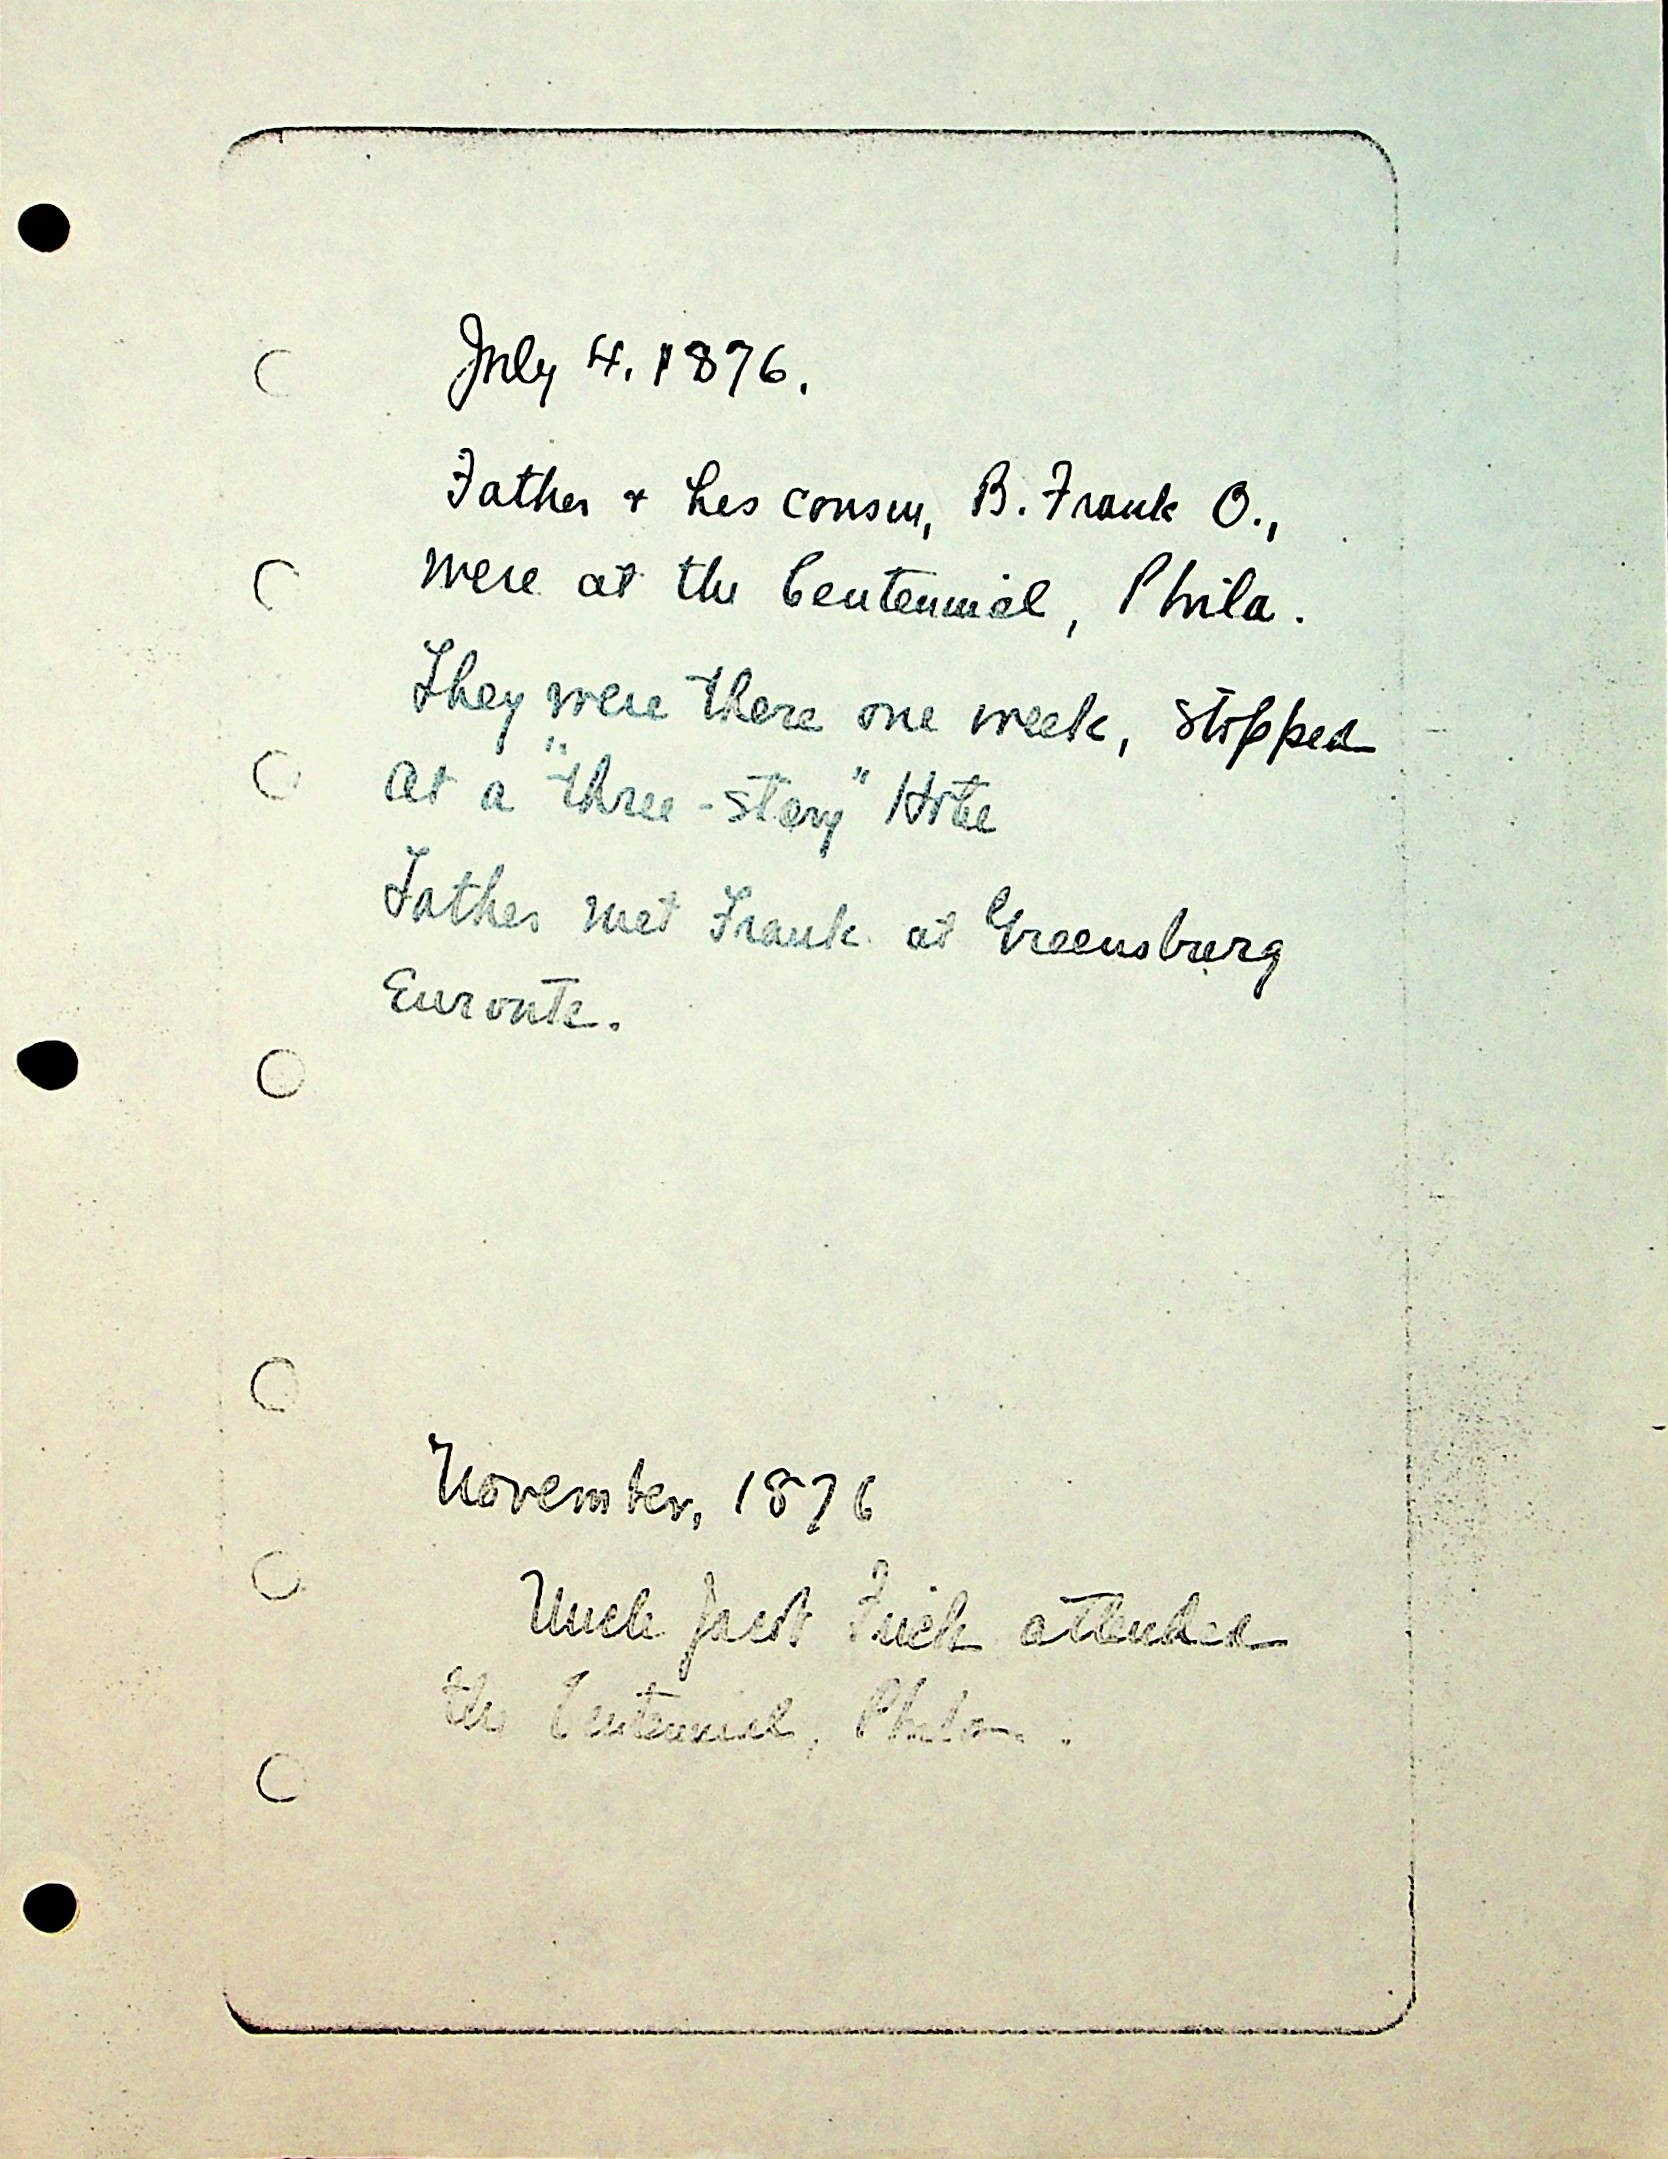 July 4, 1876.
Father + his cousin, B. Frank O.,
were at the Centennial, Phila.
They were there one week, stopped
at a "three-story" Hote
Father met Frank at Greensburg
Enroute.
November, 1876
Uncle Jacob Frick attended
the Centennial, Phila.